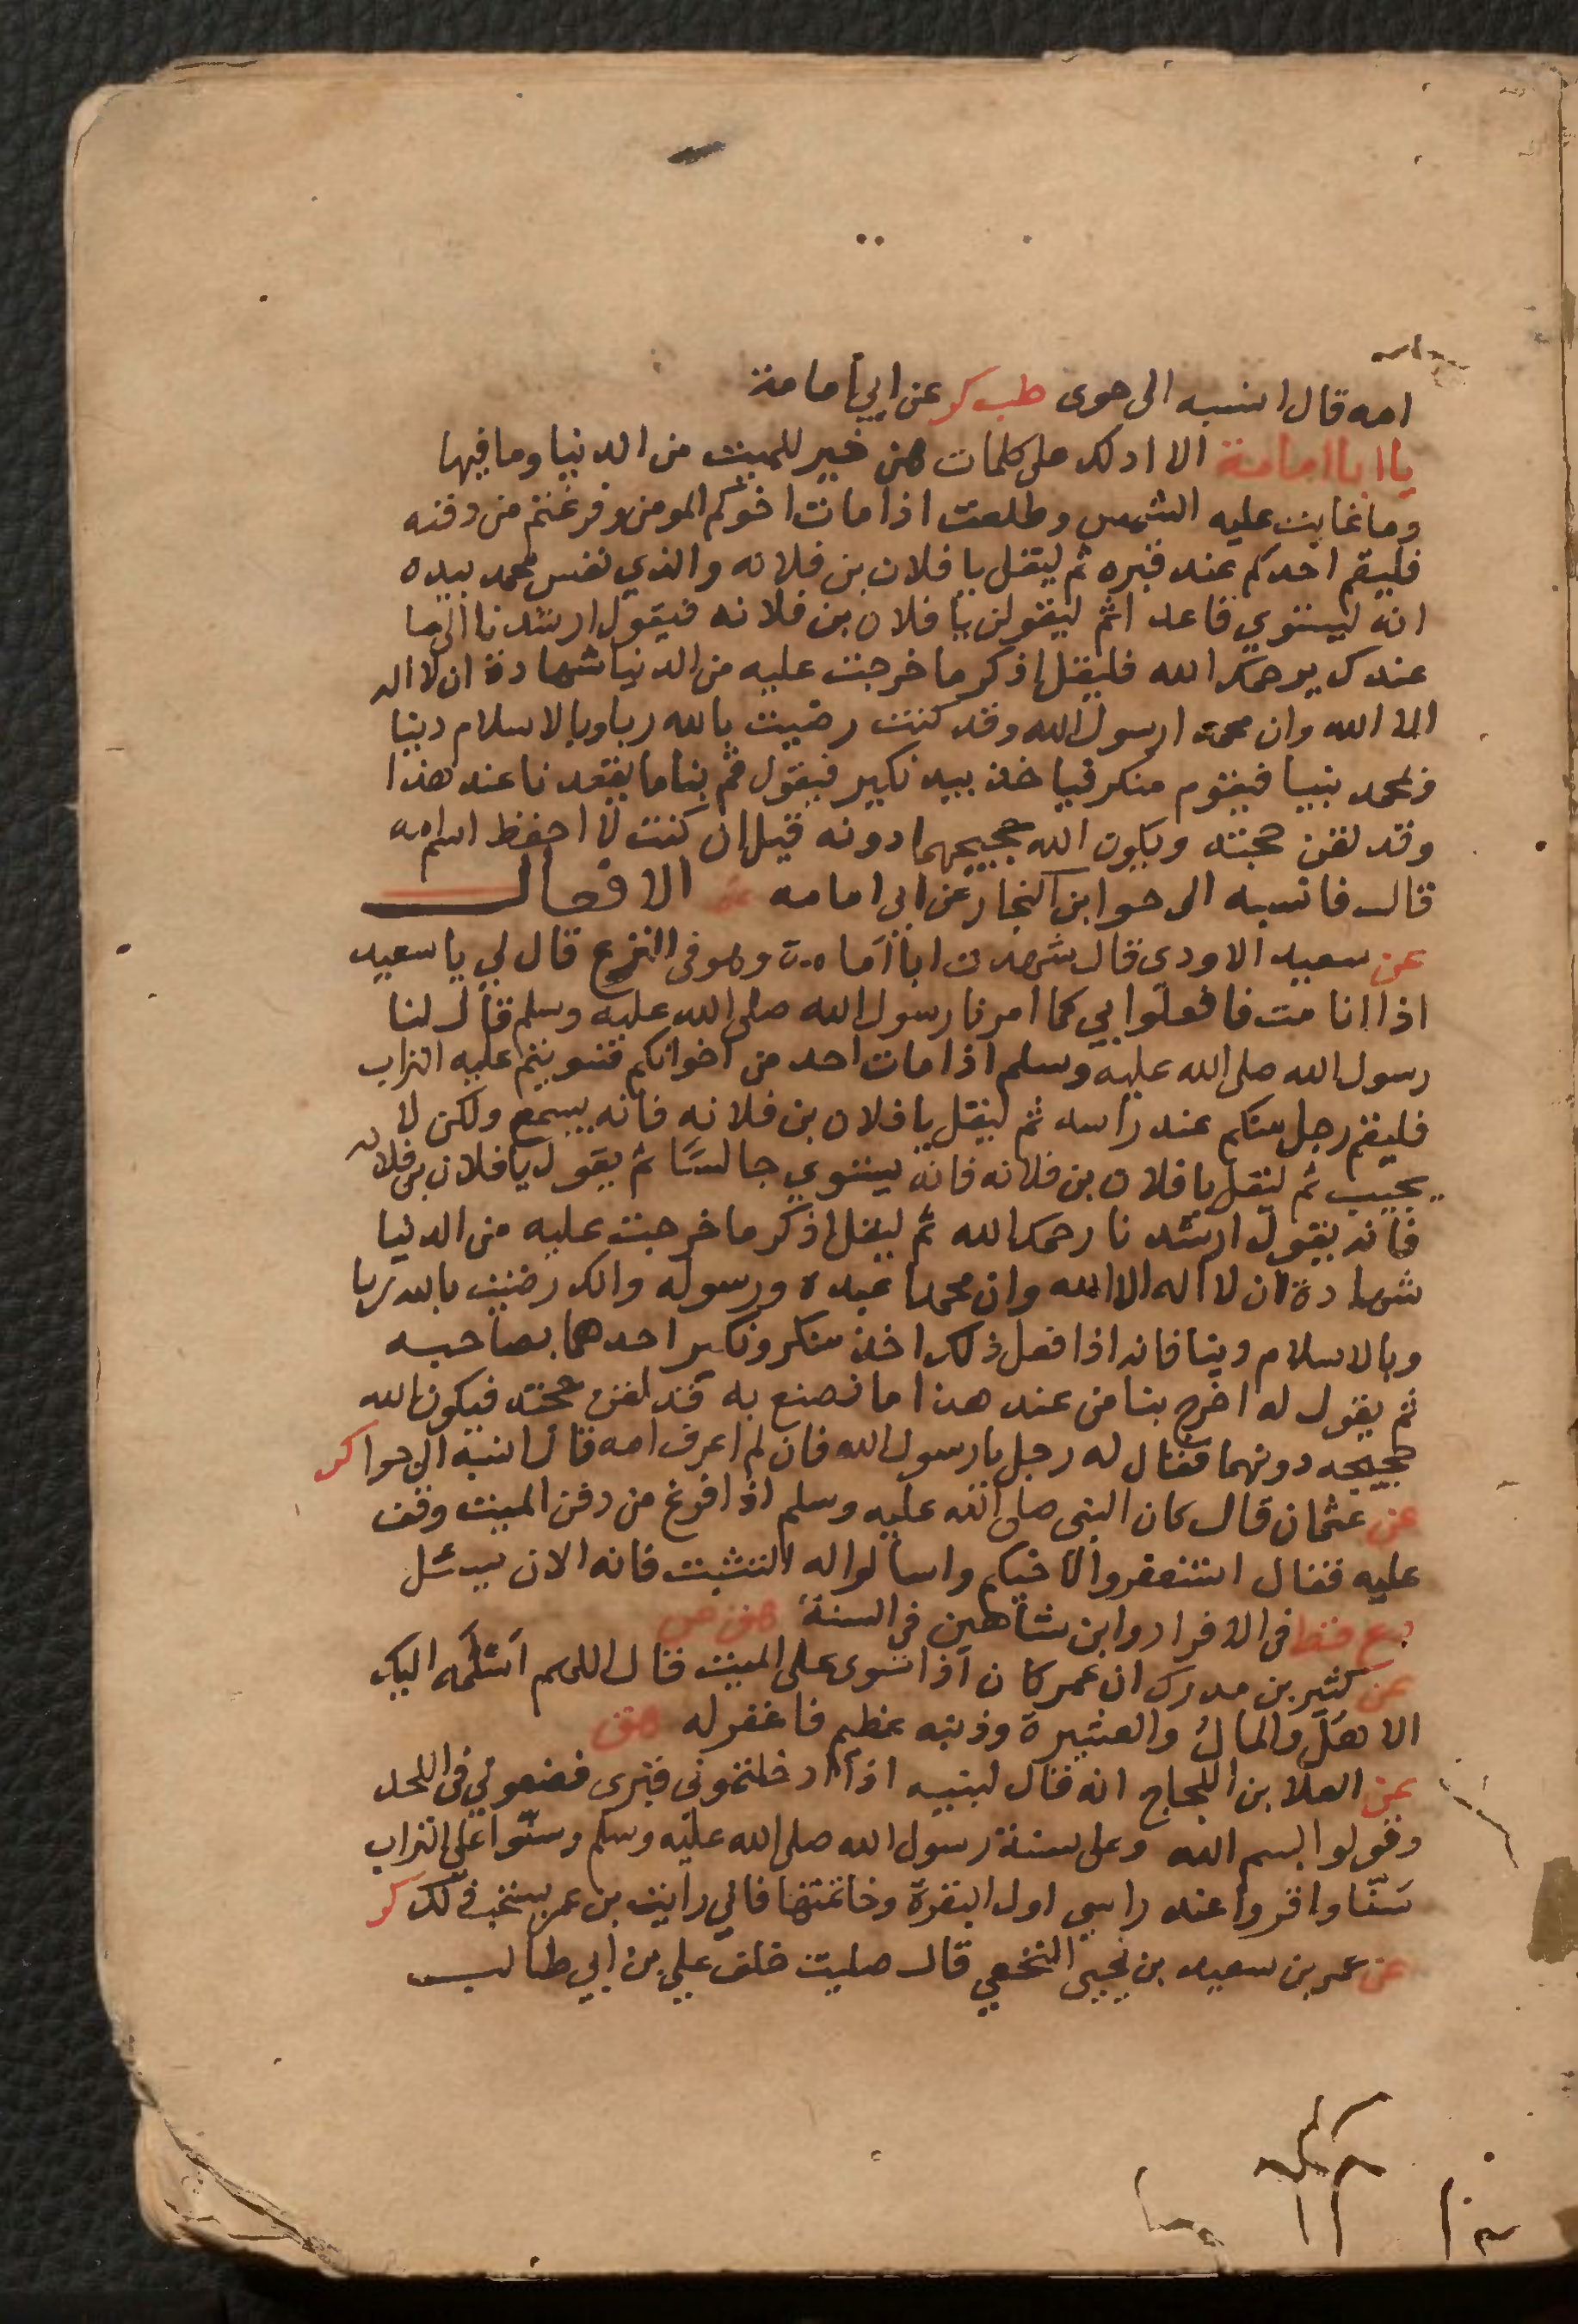 امه قال انسبه الى حوى طب كر عن ابي أمامة
يا ابا امامة الا ادلك على كلمات هن خير للميت من الدنيا وما فيها
وما غابت عليه الشمس وطلعت اذا مات اخوكم المومن وفرغتم من دفنه
فليقم احدكم عند قبره ثم ليقل يا فلان بن فلانه والذي نفس محمد بيده
انه ليستوي قاعدا ثم ليقولن يا فلان بن فلانه فيقول ارشدنا الى ما
عندك يرحمك الله فليقل اذكر ما خرجت عليه من الدنيا شهادة ان لا اله
الا الله وان محمدا رسول الله وقد كنت رضيت بالله ربا وبالاسلام دينا
وبمحمد نبيا فيقوم منكر فياخذ بيد نكير فيقول قم بنا ما يقعدنا عند هذا
وقد لقن حجته ويكون الله حجيجهما دونه قيل ان كنت لا احفظ اسم امه
قال فانسبه الى حوا ابن النجار عن ابي امامه الافعال
عن سعيد الاودي قال شهدت ابا أمامة وهو في النزع قال لي يا سعيد
اذا انا مت فافعلوا بي كما امرنا رسول الله صلى الله عليه وسلم قال لنا
رسول الله صلى الله عليه وسلم اذا مات احد من اخوانكم فسويتم عليه التراب
فليقم رجل منكم عند راسه ثم ليقل يا فلان بن فلانه فانه يسمع ولكن لا
يجيب ثم ليقل يا فلان بن فلانه فانه يستوي جالسًا ثم يقول يا فلان بن فلانه
فانه يقول ارشدنا رحمك الله ثم ليقل اذكر ما خرجت عليه من الدنيا
شهادة ان لا اله الا الله وان محمدا عبده ورسوله وانك رضيت بالله ربا
وبالاسلام دينا فانه اذا فعل ذلك اخذ منكر ونكير احدهما بصاحبه
ثم يقول له اخرج بنا من عند هذا ما نصنع به قد لقن حجته فيكون الله
حجيجه دونهما فقال له رجل يا رسول الله فان لم اعرف امه قال انسبه الى حوا كر
عن عثمان قال كان النبى صلى الله عليه وسلم اذا فرغ من دفن الميت وقف
عليه فقال استغفروا لاخيكم واسالوا له التثبت فانه الان يسئل
د ع قط في الافراد وابن شاهين في السنة هق ص
عن كثير بن مدرك ان عمر كان اذا سوى على الميت قال اللهم أسلمَه اليك
الاهلُ والمالُ والعشيرة وذنبه عظيم فاغفر له هق
عن العلا بن اللجاج انه قال لبنيه اذا ادخلتموني قبرى فضعوني في اللحد
وقولوا بسم الله وعلى سنة رسول الله صلى الله عليه وسلم وسنّوا على التراب
سَنّا واقروا عند راسي اول البقرة وخاتمتها فاني رايت بن عمر يستحب ذلك كر
عن عمر بن سعيد بن يحيى النخعي قال صليت خلف علي بن ابي طالب